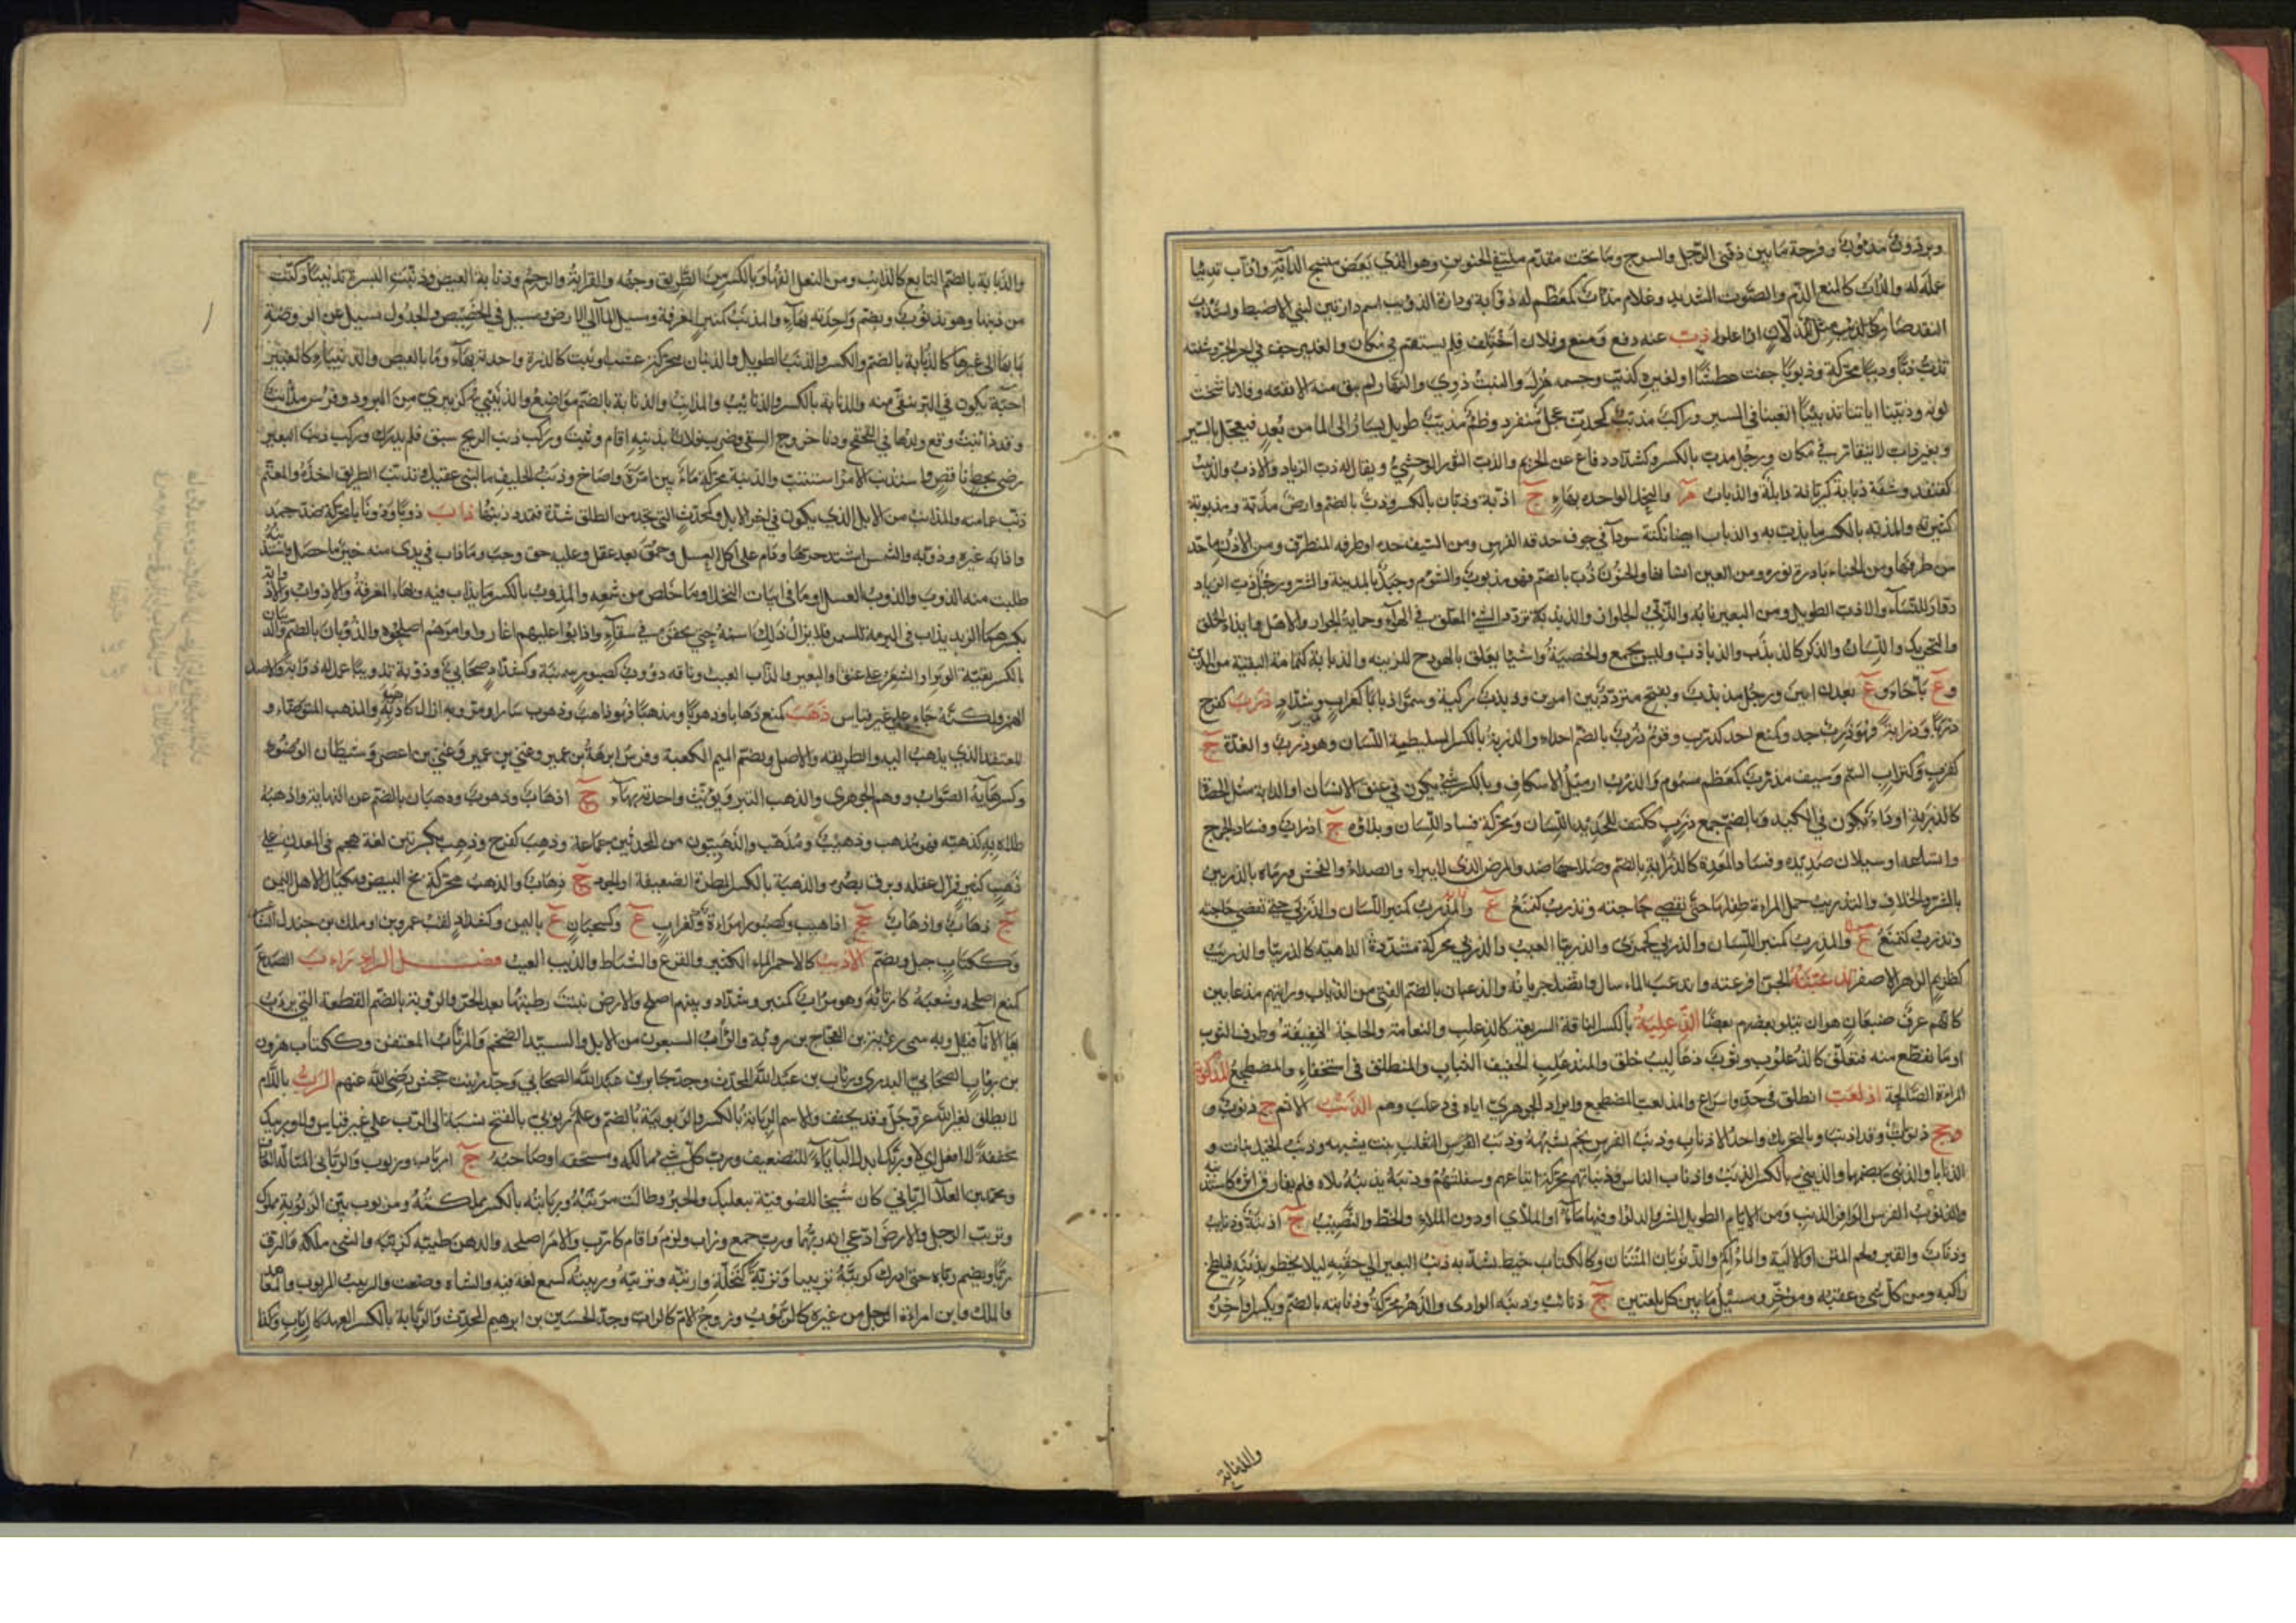 وبرذون مذؤوب وفرجة ما بين دفتى الرحل والسرج وما تحت مقدم ملتقى الحنوين وهو الذى يعض منسج الدابة واذاب تذئيبا
عمله له والذاب كالمنع الذم والصوت الشديد وغلام مذأب كمعظم له ذوابة ودارة الذويب اسم دارتين لبني الاضبط واستذاب
النقد صار كالذئب مثل للذلان اذا علوا ذب عنه دفع ومنع وفلان اختلف فلم يستقم في مكان والغدير جف في اخر الحر وشفته
تذب ذبا وذببا محركة وذبوبا جفت عطشا او لغيره كذبب وجسمه هزل والنبت ذوى والنهار لم يبق منه الا بقية وفلان شحب
لونه وذببنا ليلتنا تذبيبا اتعبنا في السير وراكب مذبب كمحدث عجل منفرد وظمء مذبب طويل يسار الى الماء من بعد فيعجل بالسير
وبعير ذاب لا يتقار في مكان ورجل مذب بالكسر وكشداد دفاع عن الحريم والذب الثور الوحشي ويقال له ذب الرياد والاذب والذنب
كقنفذ وشفة ذبابة كريانة ذابلة والذباب م والنحل الواحدة بهاء ج اذبة وذبان بالكسر وذب بالضم وارض مذبة ومذبوبة
كثيرته والمذبة بالكسر ما يذب به والذباب ايضا نكتة سوداء في جوف حدقة الفرس ومن السيف حده او طرفه المتطرف ومن الاذن ما حد
من طرفها ومن الحناء بادرة نوره ومن العين انسانها والجنون ذب بالضم فهو مذبوب والشؤم وجبل بالمدينة والشر ورجل ذب الرياد
زوار للنساء والاذب الطويل ومن البعير نابه والذبي الجلواز والذبذبة تردد الشيء المعلق في الهواء وحماية الجوار والاهل وايذاء الخلق
والتحريك واللسان والذكر كالذبذب والذباذب وليس بجمع والخصية واشياء تعلق بالهودج للزينة والذبابة كثمامة البقية من الدين
وع باجاء وع بعدن ابين ورجل مذبذب ويفتح متردد بين امرين وذبذب ركية وسموا ذبابا كغراب وشداد ذرب كفرح
ذربا وذرابة فهو ذرب حد وكمنع احد كذرب وقوم ذرب بالضم احداء والذربة بالكسر السليطة اللسان وهو ذرب والغدة ج
كقرب وكتراب السم وسيف مذرب كمعظم مسموم والذرب ازميل الاسكاف وبالكسر شيء يكون في عنق الانسان او الدابة مثل الحصاة
كالذربة او داء يكون في الكبد وبالضم جمع ذرب ككتف للحديد اللسان ومحركة فساد اللسان وبذاؤه ج اذراب وفساد الجرح
واتساعه او سيلان صديده وفساد المعدة كالذرابة بالضم وصلاحها ضد والمرض الذى لا يبرء والصداء والفحش ورماه بالذربين
بالشر والخلاف والتذريب حمل المراءة طفلها حتى يقضي حاجته وتذرب كتمنع ع والمذرب كمنبر اللسان والذربى
وتذرب كتمنع ع والمذرب كمنبر اللسان والذربى كجمزى والذربيا العيب والذربى محركة مشددة الداهية كالذربيا والذريب
كطريم الزهر الاصفر تذعبته الجن افزعته وانذعب الماء سال واتصل جريانه والذعبان بالضم الفتى من الذئاب ورايتهم مذعابين
كانهم عرف ضبعان هو ان يتلو بعضهم بعضا الذعلبة بالكسر الناقة السريعة كالذعلب والنعامة والحاجة الخفيفة وطرف الثوب
او ما تقطع منه فتعلق كالذعلوب وثوب ذعاليب خلق والمتذعلب الخفيف الثياب والمنطلق في استخفاء والمضطجع المذكوبة
المراءة الصالحة اذلعب انطلق في جد واسراع والمذلعب المضطجع وايراد الجوهري اياه في ذعلب وهم الذنب الاثم ج ذنوب و
وجج ذنوبات وقد اذنب وبالتحريك واحد الاذناب وذنب الفرس نجم يشبهه وذنب الثعلب نبت يشبهه وذنب الخيل نبات و
الذنابا والذنبى بضمها والذنبى بالكسر الذنب واذناب الناس وذنباتهم محركة اتباعهم وسفلتهم وذنبه يذنبه تلاه فلم يفارق اثره كاستذنبه
والذنوب الفرس الوافر الذنب ومن الايام الطويل الشر والدلو او فيها ماء او الملاى او دون الملاء والحظ والنصيب ج اذنبة وذنايب
وذناب والقبر ولحم المتن او الالية والماءكم والذنوبان المتنان وككتاب خيط يشد به ذنب البعير الى حقبه ليلا يخطر بذنبه فيلطخ
راكبه ومن كل شيء عقبه وموخره ومسيل ما بين كل تلعتين ج ذنائب وذنبة الوادى والدهر محركة وذنابته بالضم ويكسر اواخره
والذنابة
والذنابة بالضم التابع كالذانب ومن النعل انفها وبالكسر من الطريق وجهه والقرابة والرحم وذنابة العيص وذنبت البسرة تذنيبا وكتت
من ذنبها وهو تذنوب ويضم واحدته بهاء والمذنب كمنبر المغرفة ومسيل الماء الى الارض ومسيل في الحضيض والجدول تسيل عن الروضة
بمائها الى غيرها كالذنابة بالضم والكسر والذنب الطويل والذنبان محركة عشب او نبت كالذرة واحدته بهاء وماء بالعيص والذنيباء كالغبيراء
حبة تكون في البر ينقى منه والذنابة بالكسر والذنائب والمذانب والذنابة بالضم مواضع والذنيبي كزبيري من البرود وفرس مذانب
وقد ذانبت وقع ولدها في القحقح ودنا خروج السقي وضرب فلان بذنبه اقام وثبت وركب ذنب الريح سبق فلم يدرك وركب ذنب البعير
رضي بحظ ناقص واستذنب الامر استتب والذنبة محركة ماء بين امرة واضاخ وذنب الحليف ماء لبني عقيل وتذنب الطريق اخذه والمعتم
ذنب عمامته والمذانب من الابل الذي يكون في اخر الابل وكمحدث التي تجد من الطلق شدة فتمدد ذنبها ذاب ذوبا وذوبانا محركة ضد جمد
واذابه غيره وذوبه والشمس اشتد حرها ودام على اكل العسل وحمق بعد عقل وعليه حق وجب وما ذاب في يدى منه خير ما حصل واستذبته
طلبت منه الذوب والذوب العسل او ما في ابيات النحل او ما خلص من شمعه والمذوب بالكسر ما يذاب فيه وبهاء المغرفة والاذواب والاذوابة
بكسرهما الزبد يذاب في البرمة للسمن فلا يزال ذلك اسمه حتى يحقن في سقاء واذابوا عليهم اغاروا وامرهم اصلحوه والذوبان بالضم والذيبان
بالكسر بقية الوبر او الشعر على عنق البعير والذاب العيب وناقه ذؤوب كصبور سمينة وكشداد صحابي وذوبه تذويبا عمل له ذوابة والاصل
الهمز ولكنه جاء على غير قياس ذهب كمنع ذهابا وذهوبا ومذهبا فهو ذاهب وذهوب سار او مر وبه ازاله كاذهبه والمذهب المتوضاء و
المعتقد الذى يذهب اليه والطريقه والاصل وبضم الميم الكعبة وفرس ابرهة بن عمير وغني بن اعصر وشيطان الوضوء
وكسر هائه الصواب ووهم الجوهرى والذهب التبر ويؤنث واحدته بهاء ج اذهاب وذهوب وذهبان بالضم عن النهاية واذهبه
طلاه به كذهبه فهو مذهب وذهيب ومذهب والذهبيون من المحدثين جماعة وذهب كفرح وذهب بكسرتين لغة هجم في المعدن على
ذهب كثير فزال عقله وبرق بصره والذهبة بالكسر المطرة الضعيفة او الجود ج ذهاب والذهب محركة مح البيض ومكيال لاهل اليمن
ج ذهاب واذهاب جج اذاهيب وكصبور امراءة وكغراب ع وكسحبان ع باليمن وكشداد لقب عمرو بن او ملك بن جندل الشاعر
وككتاب جبل ويضم الاذيب كالاحمر الماء الكثير والفزع والنشاط والذيب العيب فصل الراء راب الصدع
كمنع اصلحه وشعبه كارتابه وهو مراب كمنبر وشداد وبينهم اصلح والارض نبتت رطبتها بعد الجز والروبة بالضم القطعة التي يرءب
بها الاناء قيل وبه سمى روبة بن العجاج بن روبة والراب السبعون من الابل والسيد الضخم والمرتاب المعتفن وككتاب هرون
بن رياب الصحابي البدري ورياب بن عبد الله المحدث وجد جابر بن عبد الله الصحابي وجد زينب بنت جحش رضي الله عنهم الرب باللام
لا يطلق لغير الله عز وجل وقد يخفف والاسم الربابة بالكسر والربوبية بالضم وعلم ربوبي بالفتح نسبة الى الرب على غير قياس ولا وربيك
مخففة لا افعل اي لا وربك ابدل الباء ياء للتضعيف ورب كل شيء مالكه ومستحقه او صاحبه ج ارباب وربوب والرباني المتاله العارف
ومحمد بن العلاء الرباني كان شيخا للصوفية ببعلبك والحبر وطالت مربته وربابته بالكسر مملكته ومربوب بين الربوبة مملوك
وتربب الرجل والارض ادعى انه ربهما ورب جمع وزاد ولزم واقام كارب والامر اصلحه والدهن طيبه كرببه والشيء ملكه والزق
ربا ويضم رباه حتى ادرك كرببه تربيبا وتربة كتحلة وارتبه وترببه وربيته كسمع لغة فيه والشاة وضعت والربيب المربوب والمعاهد
والملك وابن امراءة الرجل من غيره كالربوب وزوج الام كالراب وجد الحسين بن ابرهيم المحدث والربابة بالكسر العهد كالرباب وكذا